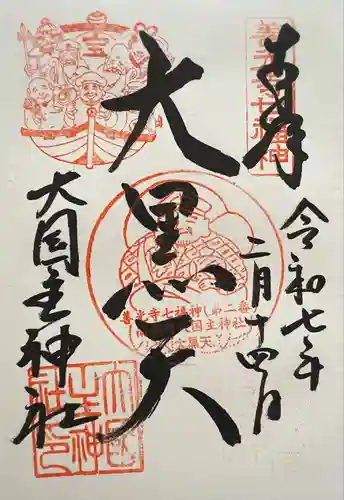 奉拝
善光寺七福神
令和七年
二月十四日
大黒天
善光寺七福神 第二番
大国主神社
大黒天
大国主神社